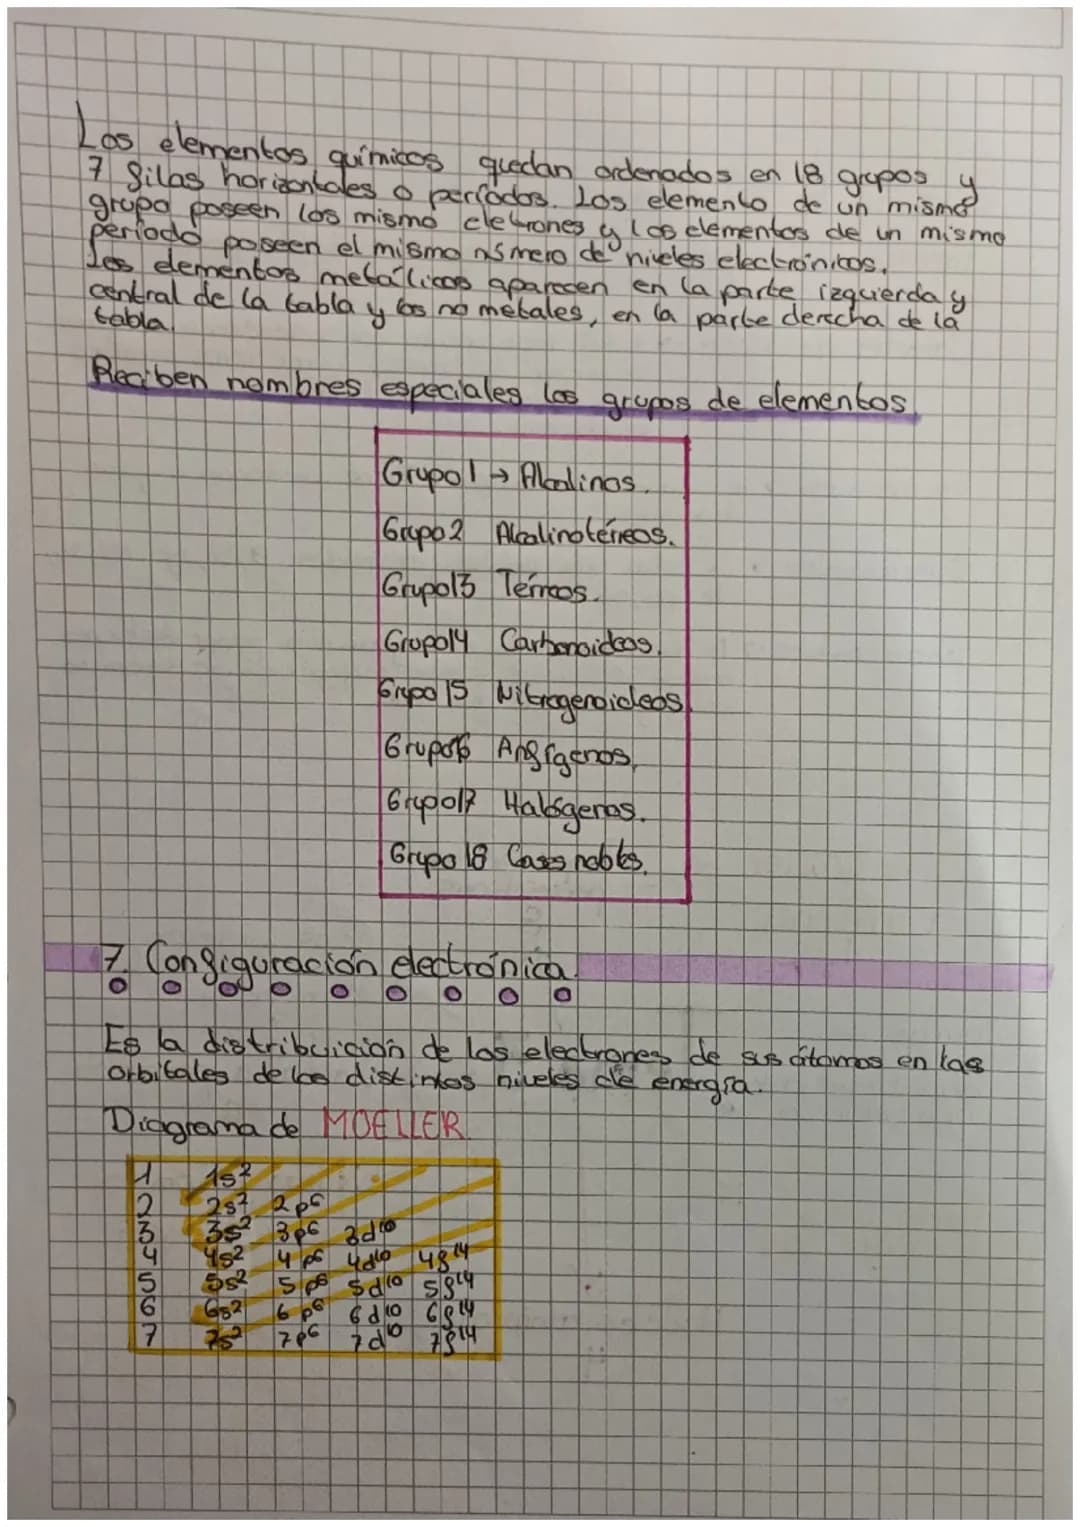 Los elementos químicos quedan ordenados en 18 grupos y
7 filas horizontales o períodos. Los elemento de un mismo
grupo poseen los mismo eletrones y los elementos de un mismo
período poseen el mismo número de niveles electrónicos.
Los elementos metálicos aparecen en la parte izquierda y
central de la tabla y los no metales, en la parte derecha de la
tabla.
Reciben nombres especiales los grupos de elementos
Grupo 1 → Alcalinos.
Grupo 2 Alcalinotérreos.
Grupo 13 Térreos.
Grupo 14 Carbonoideos.
Grupo 15 Nitrogenoideos
Grupo 16 Anfígenos.
Grupo 17 Halógenos.
Grupo 18 Gases nobles.
7. Configuración electrónica.
Es la distribuición de los electrones de sus átomos en las
orbitales de los distintos niveles de energía.
Diagrama de MOELLER
1 1s²
2 2s² 2p⁶
3 3s² 3p⁶ 3d¹⁰
4 4s² 4p⁶ 4d¹⁰ 4f¹⁴
5 5s² 5p⁶ 5d¹⁰ 5f¹⁴
6 6s² 6p⁶ 6d¹⁰ 6f¹⁴
7 7s² 7p⁶ 7d¹⁰ 7f¹⁴